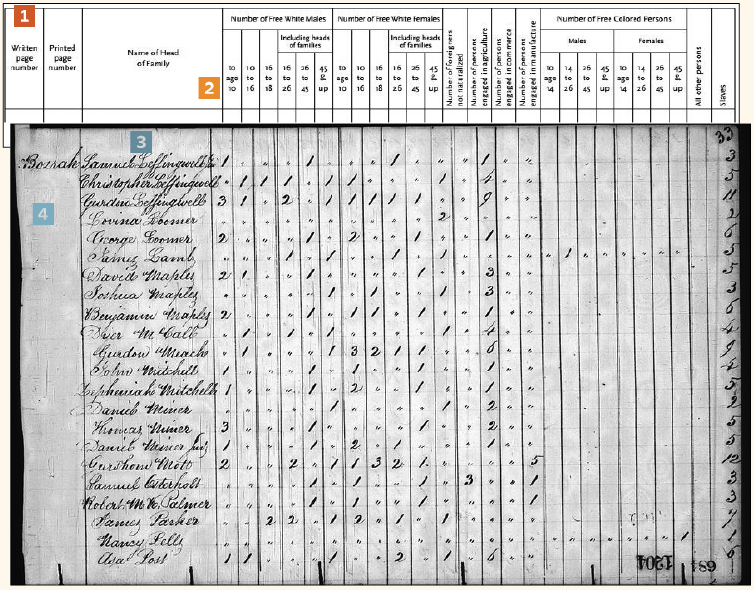 1
Number of Free White Males Number of Free White Females Number of Free Colored Persons
Including heads of families Including heads of families Males Females
Written page number
Printed page number
Name of Head of Family
to age 10
10 to 16
16 to 18
16 to 26
26 to 45
45 & up
to age 10
10 to 16
16 to 18
26 to 45
45 & up
Number of foreigners not naturalized
Number of persons engaged in agriculture
Number of persons engaged in commerce
Number of persons engaged in manufacture
to age 14
14 to 26
26 to 45
45 & up
to age 14
14 to 26
26 to 45
45 & up
All other persons
Slaves
2
33
3
Bozrah Samuel Leffingwell 1 1 1 1 3
Christopher Leffingwell 1 1 1 1 1 1 1 4 5
Gurdin Leffingwell 3 1 2 1 1 1 1 1 9 11
4
Lovina Loomer 2 2
George Loomer 2 1 2 1 1 6
James Lamb 1 1 1 1 1 5
David Maples 2 1 1 1 3 5
Joshua Maples 1 1 1 3 3
Benjamin Maples 2 1 1 1 1 1
Dyer McCall 1 1 1 1 4
Gurdon Meach 1 1 3 2 1 1 6 9
John Mitchell 1 1 1 1 1
Zepheniah Mitchell 1 1 2 1 1 5
Daniel Miner 1 1 2 2
Thomas Miner 3 1 1 2 5
Daniel Miner 1 1 2 1 1 5
Gershom Mott 2 2 1 1 3 2 1 5 12
Samuel 1 1 1 3 1 3
Robert Palmer 1 1 1 1 3
James Parker 2 2 1 2 1 1
Nancy 1 1
Asa Post 1 1 1 2 1 6 6
1204 684